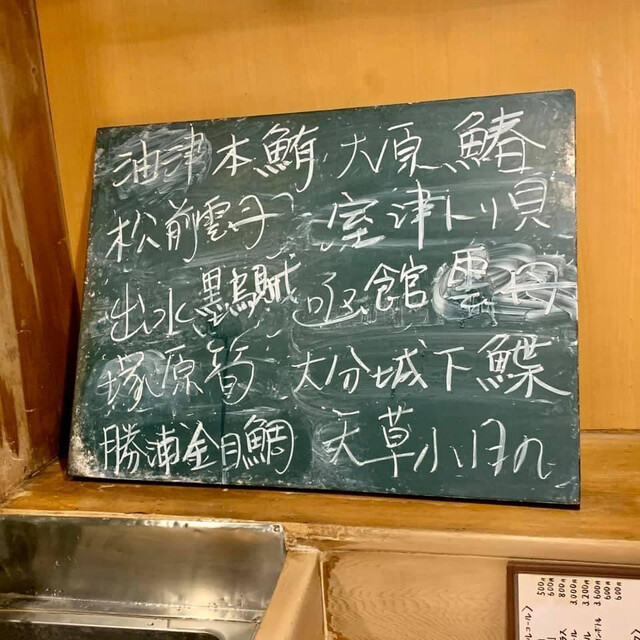 油津本鮪 大原鰆
松前雲丹 室津トリ貝
出水墨烏賊 函館雲丹
塚原筍 大分城下鰈
勝浦金目鯛 天草小肌
600円
600円
3,600円
3,200円
3,000円
800円
600円
500円